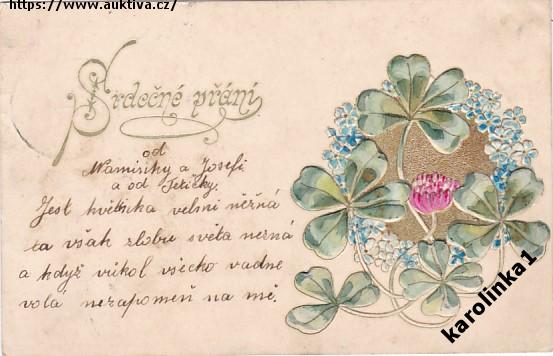 https://www.auktiva.cz/
Srdečné přání
od
Maminky a Josefi
a od Teričky.
Jest květinka velmi něžná
ta však zlobu světa nezná
a když vůkol všecko vadne
volá nezapomeň na mě.
karolinka1